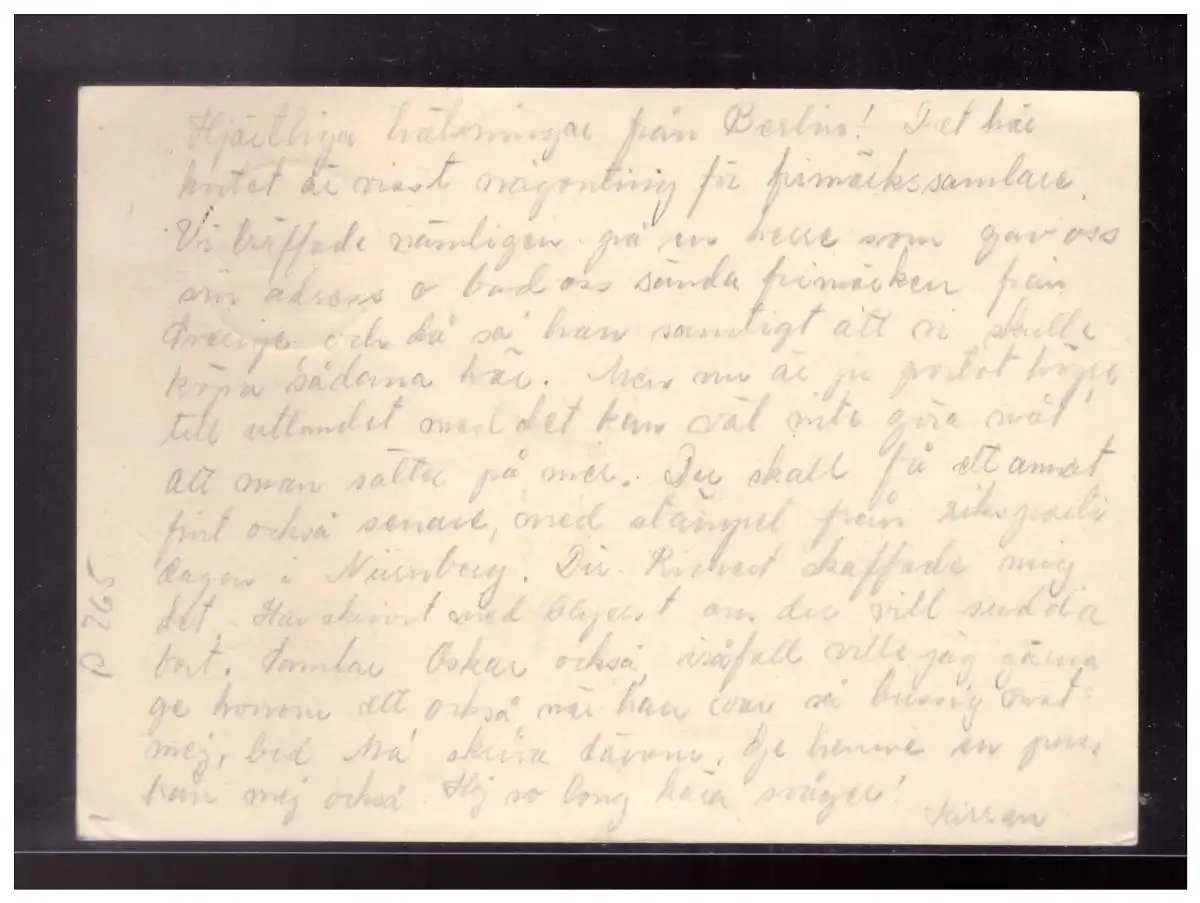 Hjärtliga hälsningar från Berlin! Det här
kortet är visst någonting för frimärkssamlare.
Vi träffade nämligen på en herre som gav oss
sin adress o bad oss sända frimärken från
Sverige och då sa han samtigt att vi skulle
köpa sådana här. Men nu är ju portot högre
till utlandet med det kan väl inte göra nåt
att man sätter på mer. Du skall få ett annat
fint också senare, med stämpel från riksparti
dagen i Nürnberg. Dir. skaffade mig
det. Har skrivit med blyerts om du vill sudda
bort. Samlar Oskar också, isåfall ville jag gärna
ge honom ett också när han var så bussig mot
mej, bed Ma skriva därom. Ge henne en puss,
han mej också. Hej so long kära svåger!
P 265